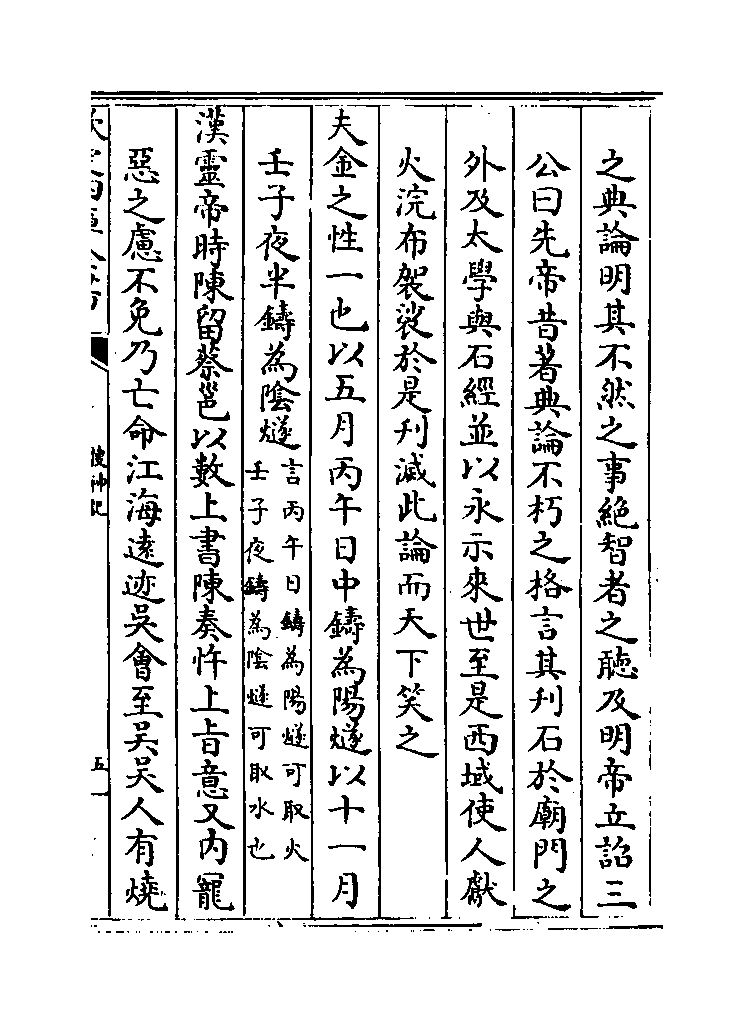 之典論明其不然之事絶智者之聽及明帝立詔三
公曰先帝昔著典論不朽之格言其刋石於廟門之
外及太學與石經並以永示來世至是西域使人獻
火浣布袈裟於是刋滅此論而天下笑之
夫金之性一也以五月丙午日中鑄為陽燧以十一月
壬子夜半鑄為陰燧言丙午日鑄為陽燧可取火
壬子夜鑄為陰燧可取水也
漢靈帝時陳留蔡邕以數上書陳奏忤上㫖意又内寵
惡之慮不免乃亡命江海遠迹吳會至吳吳人有燒
搜神記